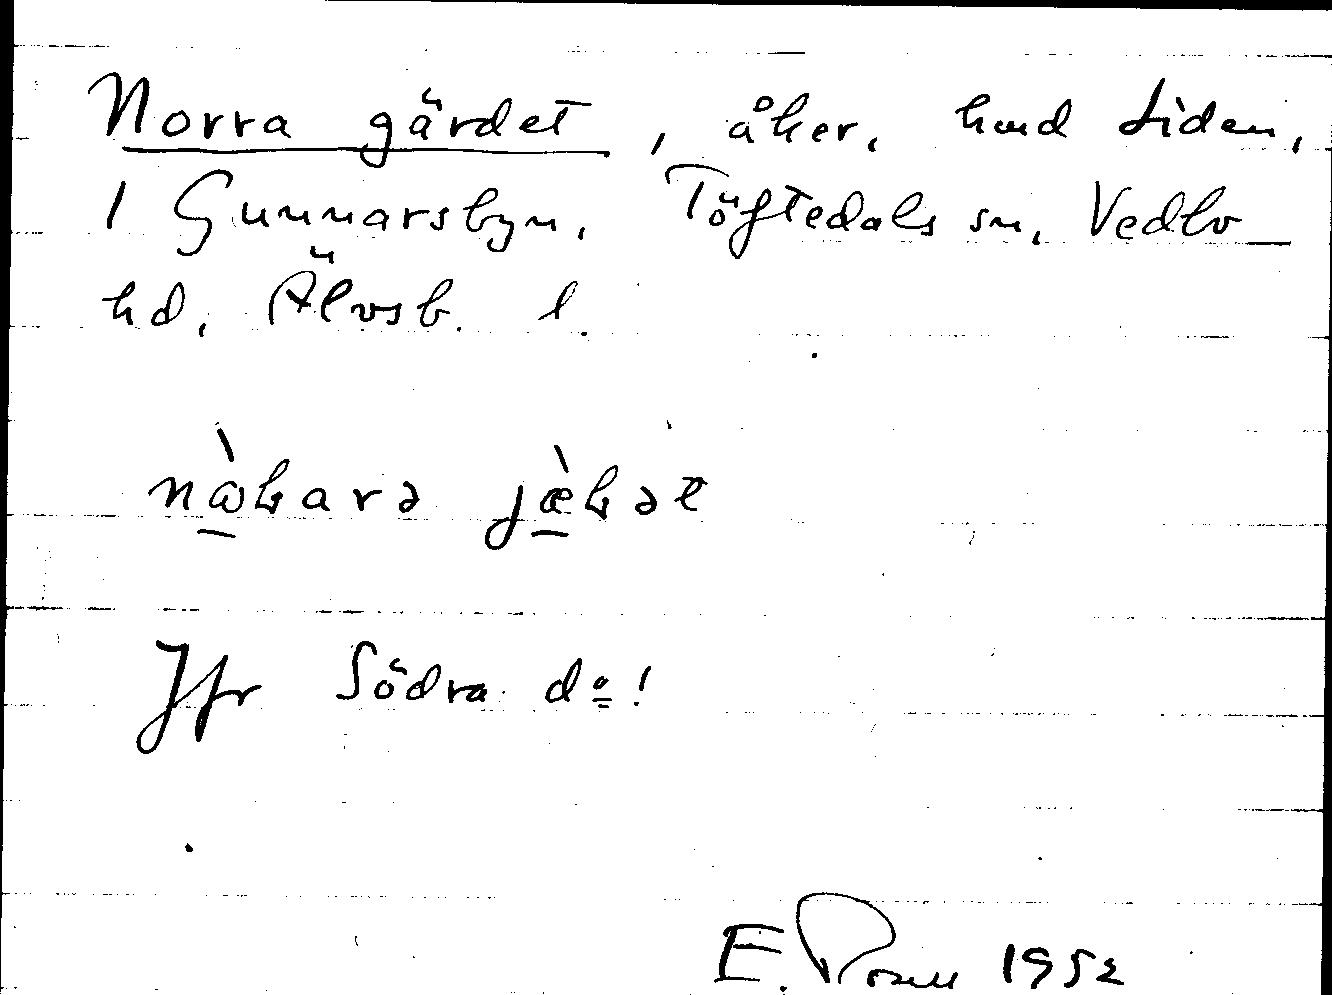 Norra gärdet, åker, hmd Liden,
1 Gunnarsbyn, Töftedals sn, Vedbo
hd, Älvsb. l.
jæ̀ɫət
Jfr Södra do!
E. Rosell 1952